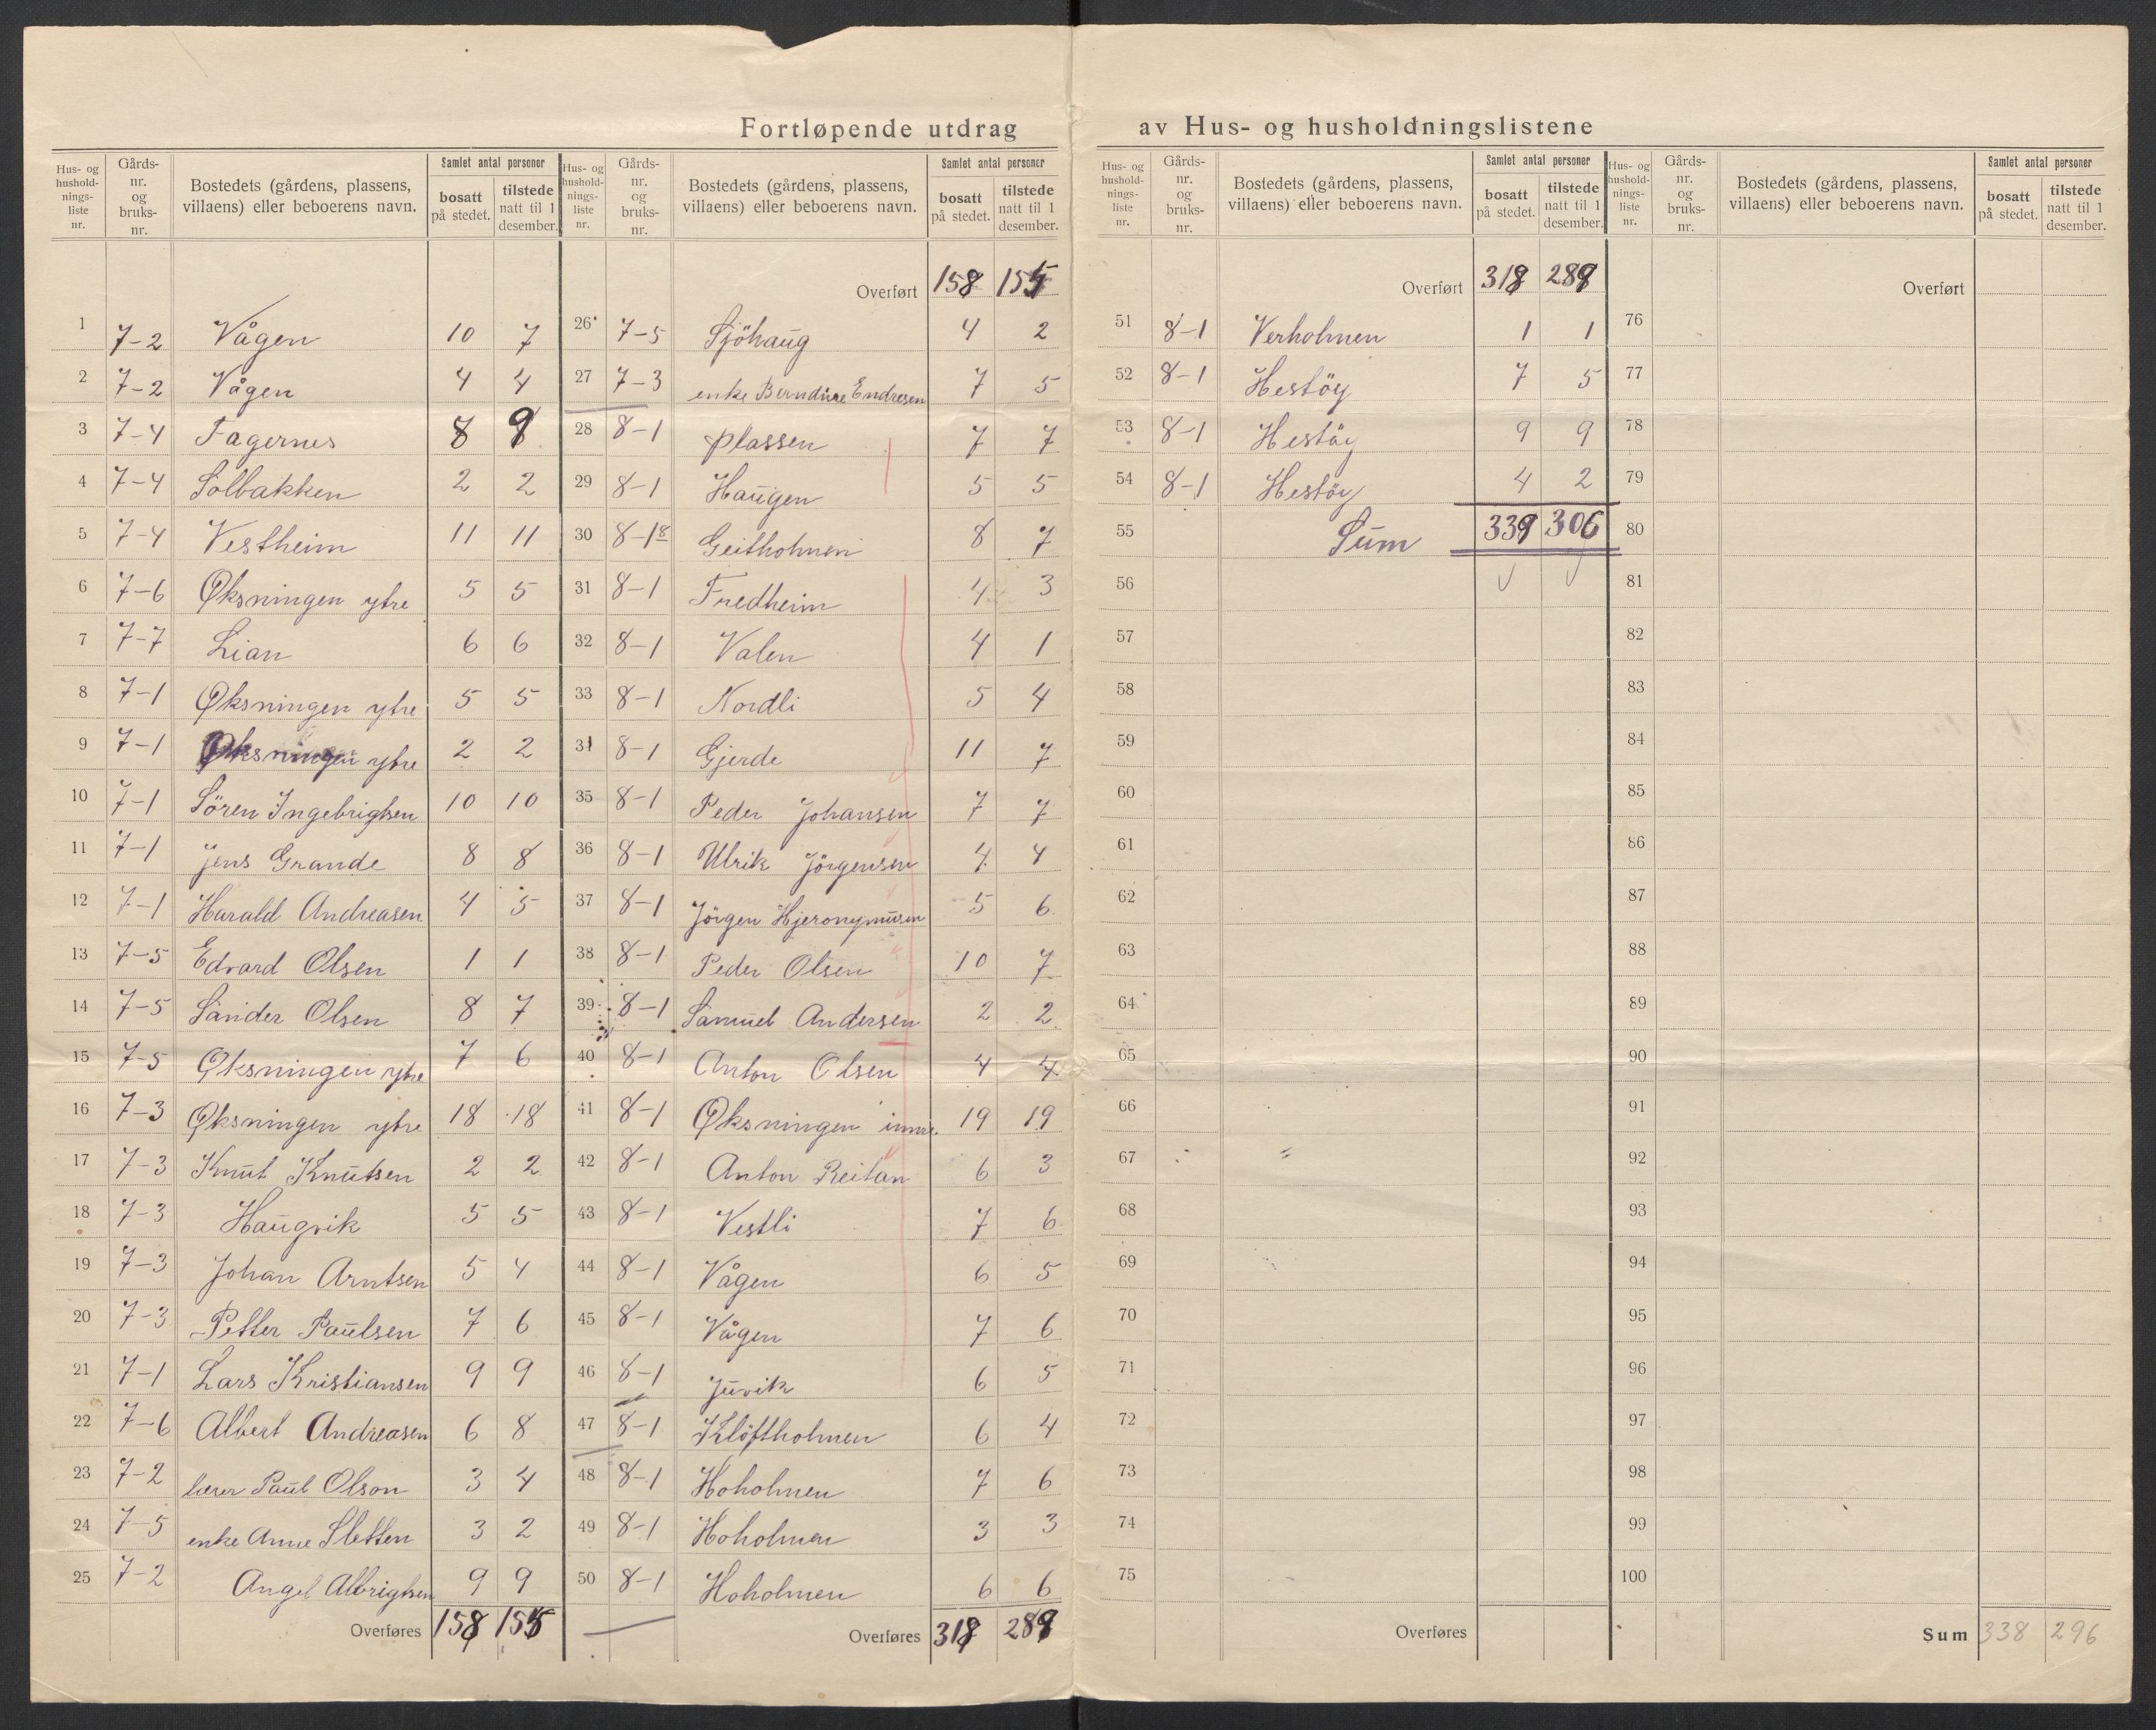 Fortløpende utdrag av Hus- og husholdningslistene
Hus- og hushold-nings-liste nr. | Gårds-nr. og bruks-nr. | Bostedets (gårdens, plassens, villaens) eller beboerens navn. | Samlet antal personer | bosatt på stedet. | tilstede natt til 1 desember.
1 7-2 Vågen 10 7
2 7-2 Vågen 4 4
3 7-4 Fagernes 8 9
4 7-4 Solbakken 2 2
5 7-4 Vestheim 11 11
6 7-6 Øksningen ytre 5 5
7 7-7 Lian 6 6
8 7-1 Øksningen ytre 5 5
9 7-1 Øksningen ytre 2 2
10 7-1 Sören Ingebrigtsen 10 10
11 7-1 Jens Grande 8 8
12 7-1 Harald Andreasen 4 5
13 7-5 Edvard Olsen 1 1
14 7-5 Sander Olsen 8 7
15 7-5 Øksningen ytre 7 6
16 7-3 Øksningen ytre 18 18
17 7-3 Knut Knutsen 2 2
18 7-3 Haugvik 5 5
19 7-3 Johan Arntsen 5 4
20 7-3 Petter Paulsen 7 6
21 7-1 Lars Kristiansen 9 9
22 7-6 Albert Andreasen 6 8
23 7-2 lærer Paul Olson 3 4
24 7-5 enke Anne Sletten 3 2
25 7-2 Angel Albrigtsen 9 9
Overføres 158 155
Hus- og hushold-nings-liste nr. | Gårds-nr. og bruks-nr. | Bostedets (gårdens, plassens, villaens) eller beboerens navn. | Samlet antal personer | bosatt på stedet. | tilstede natt til 1 desember.
Overført 158 155
26 7-5 Sjöhaug 4 2
27 7-3 enke Berndine Endresen 7 5
28 8-1 plassen 7 7
29 8-1 Haugen 5 5
30 8-18 Geitholmen 8 7
31 8-1 Fredheim 4 3
32 8-1 Valen 4 1
33 8-1 Nordli 5 4
34 8-1 Gjerde 11 7
35 8-1 Peder Johansen 7 7
36 8-1 Ulrik Jörgensen 4 4
37 8-1 Jörgen Hjeronymusen 5 6
38 8-1 Peder Olsen 10 7
39 8-1 Samuel Andersen 2 2
40 8-1 Anton Olsen 4 4
41 8-1 Øksningen innre 19 19
42 8-1 Anton Reitan 6 3
43 8-1 Vestli 7 6
44 8-1 Vågen 6 5
45 8-1 Vågen 7 6
46 8-1 Juvik 6 5
47 8-1 Klöftholmen 6 4
48 8-1 Hoholmen 7 6
49 8-1 Hoholmen 3 3
50 8-1 Hoholmen 6 6
Overføres 318 289
Hus- og hushold-nings-liste nr. | Gårds-nr. og bruks-nr. | Bostedets (gårdens, plassens, villaens) eller beboerens navn. | Samlet antal personer | bosatt på stedet. | tilstede natt til 1 desember.
Overført 318 289
51 8-1 Verholmen 1 1
52 8-1 Hestöy 7 5
53 8-1 Hestöy 9 9
54 8-1 Hestöy 4 2
55 Sum 339 306
56
57
58
59
60
61
62
63
64
65
66
67
68
69
70
71
72
73
74
75
Overføres
Hus- og hushold-nings-liste nr. | Gårds-nr. og bruks-nr. | Bostedets (gårdens, plassens, villaens) eller beboerens navn. | Samlet antal personer | bosatt på stedet. | tilstede natt til 1 desember.
Overført
76
77
78
79
80
81
82
83
84
85
86
87
88
89
90
91
92
93
94
95
96
97
98
99
100
Sum 338 296